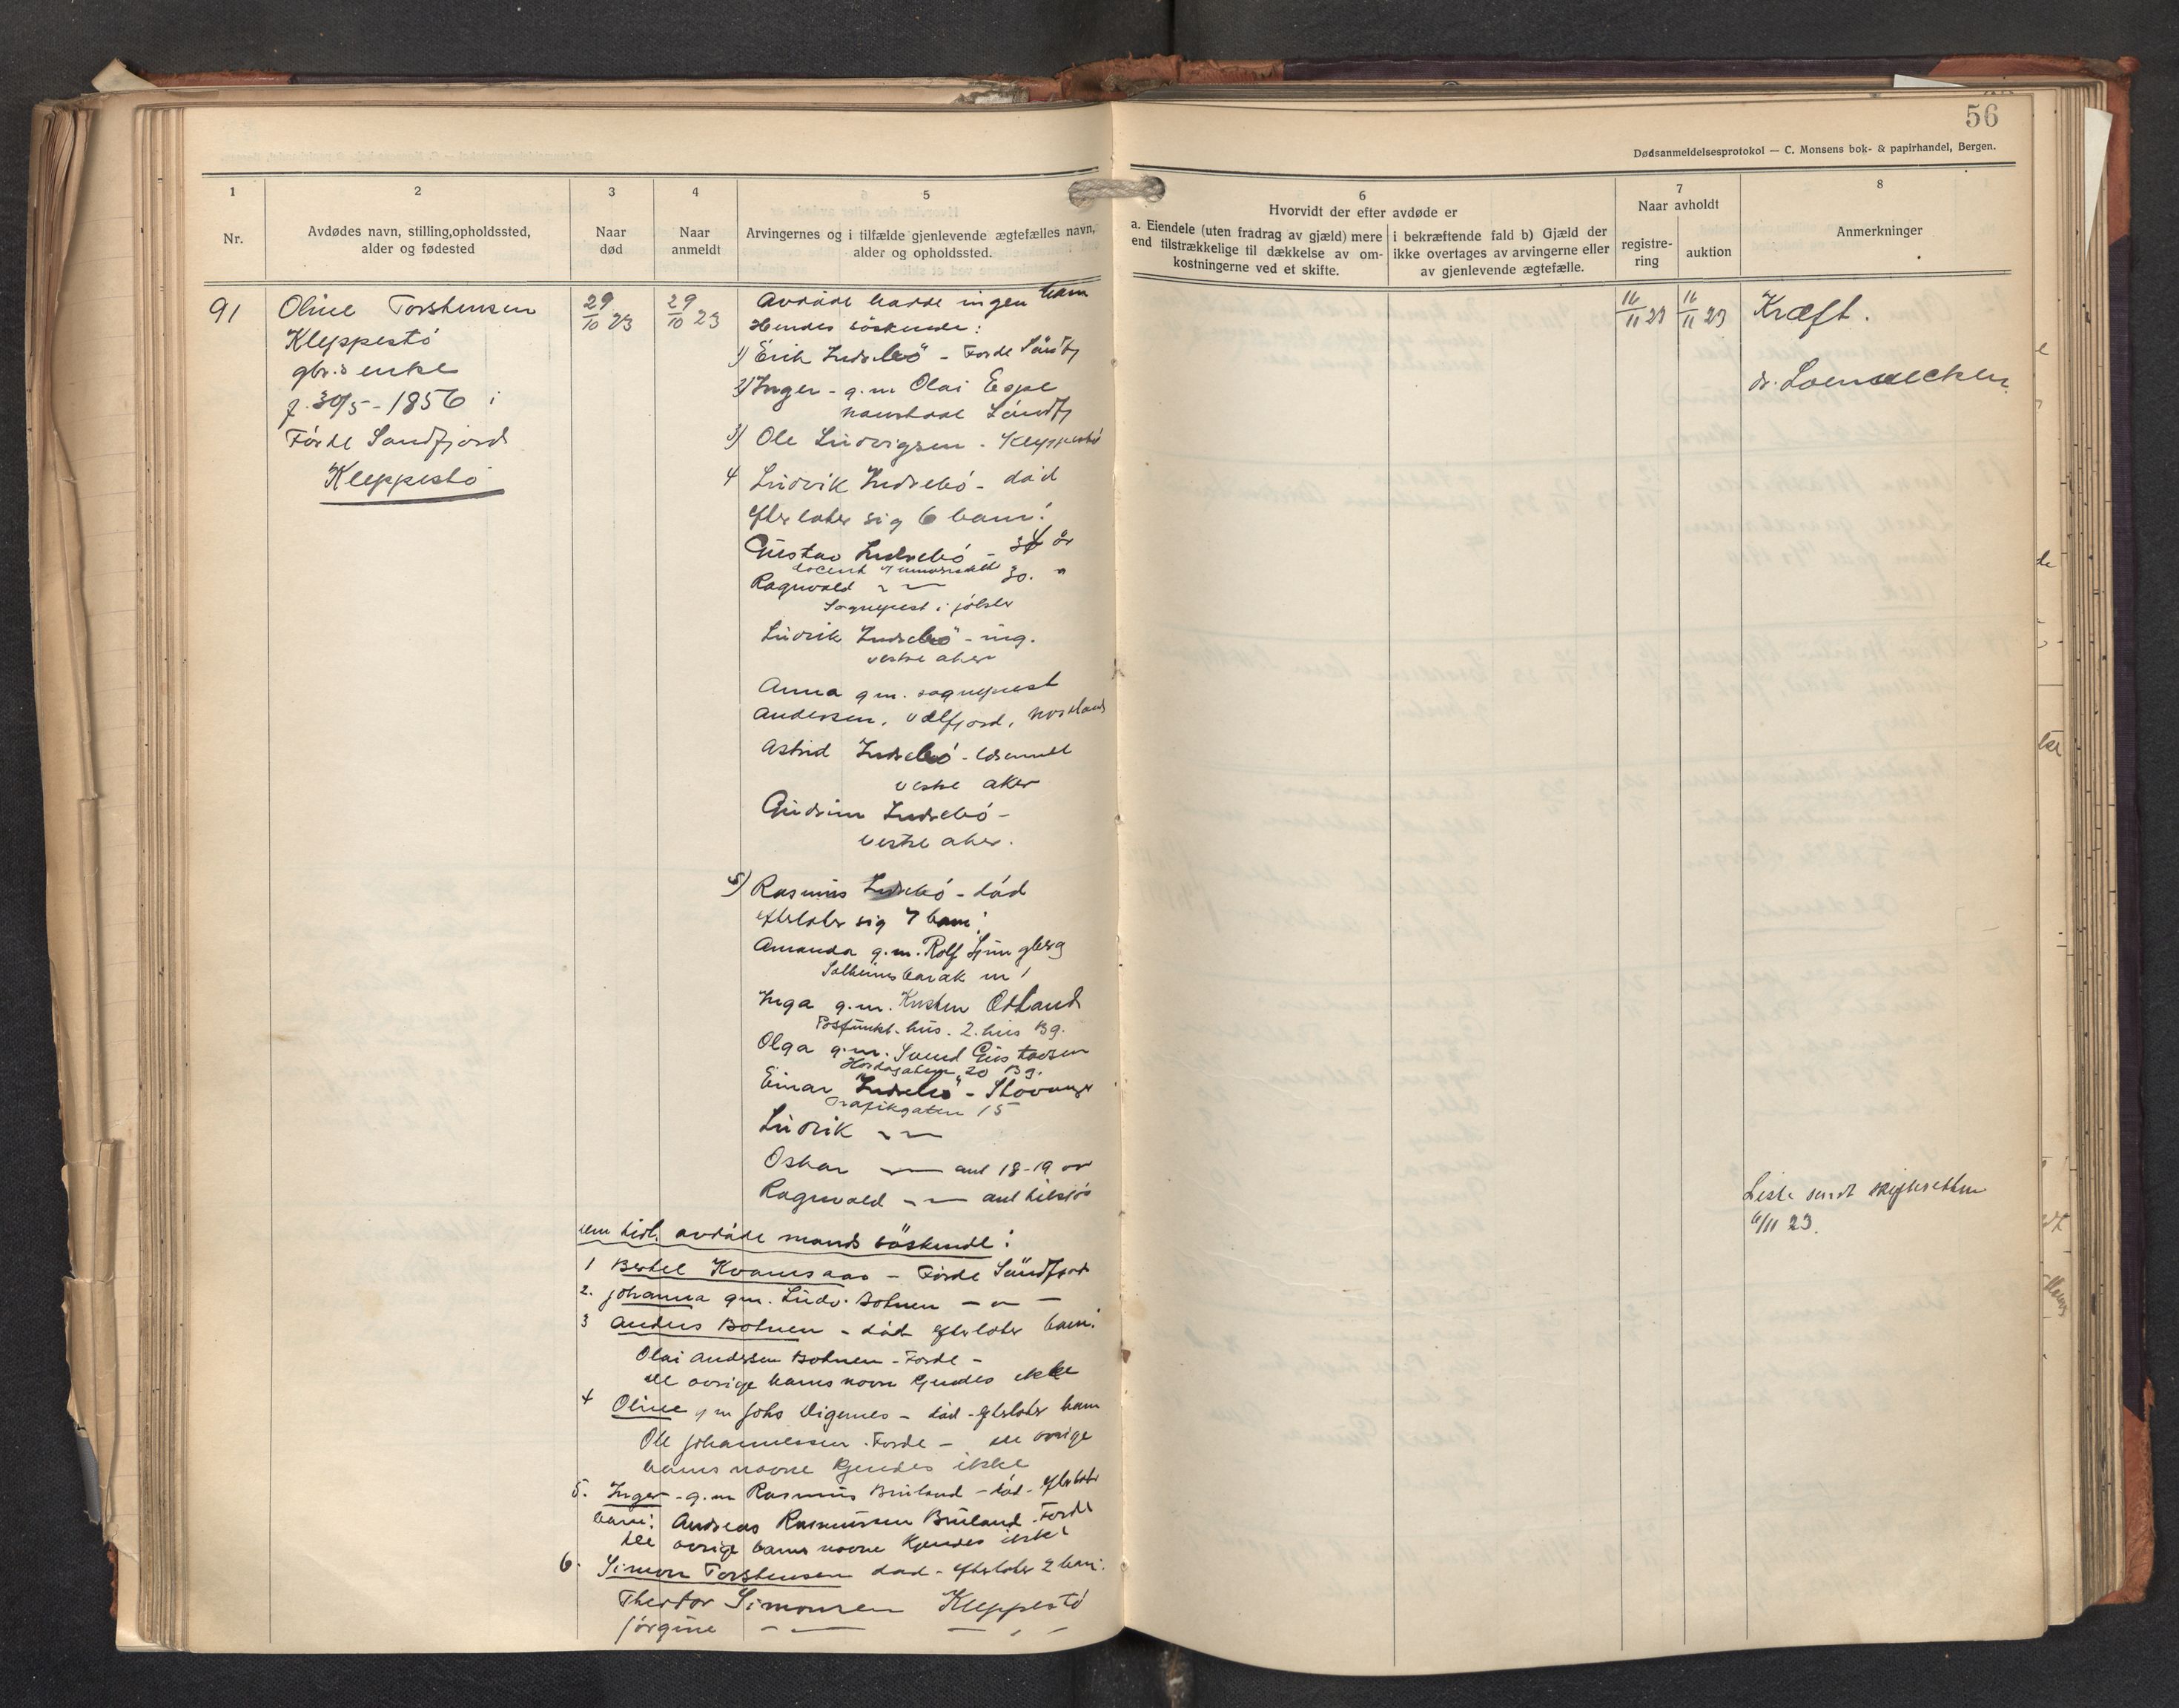 56
Dødsanmeldelsesprotokol — C. Monsens bok- & papirhandel, Bergen.
1
Nr.
2
Avdødes navn, stilling, opholdssted,
alder og fødested
3
Naar
død
4
Naar
anmeldt
5
Arvingernes og i tilfælde gjenlevende ægtefælles navn,
alder og opholdssted.
6
Hvorvidt der efter avdøde er
a. Eiendele (uten fradrag av gjæld) mere
end tilstrækkelige til dækkelse av om-
kostningerne ved et skifte.
i bekræftende fald b) Gjæld der
ikke overtages av arvingerne eller
av gjenlevende ægtefælle.
7
Naar avholdt
registre-
ring
auktion
8
Anmerkninger
91
Oline Torstensen
Kleppestö
gbr.s enke
f. 30/5 - 1856 i
Förde Søndfjord
Kleppestö
29/10 23
29/10 23
Avdöde hadde ingen barn
Hendes söskende:
1) Erik Indrebö - Förde Söndfj
2) Inger - g.m Olai Espe
Naustdal Söndfj
3) Ole Ludvigsen - Kleppestö
4 Ludvik Indrebö - död
efterlater sig 6 barn:
Gustav Indrebö - 34 år
docent v universitetet
Ragnvald 30. "
Sogneprest i Jölster
Ludvik Indrebö - ing.
vestre aker
Anna g m. sogneprest
Andersen, Velfjord, Nordland
Astrid Indrebö -
vestre aker
Gudrun Indrebö -
vestre aker.
5) Rasmus Indrebö - död
efterlater sig 7 barn:
Amanda g.m. Rolf Ljungberg
Solheimsbarak nr 1
Inga g.m. Kristen Östland
hus. 2. hus Bg.
Olga g.m. Svend Gustavsen
20 Bg.
Einar Indrebö - Stavanger
Trafikgaten 15
Ludvik
Oskar — ant 18-19 år
Ragnvald — ant tilsjös
sem tidl. avdöde mands söskende:
1 Bertel Kvamsaas - Förde Söndfjord
2. Johanna gm. Ludv. Botnen — " —
3 Anders Botnen - död efterlater barn:
Olai Andersen Botnen - Förde -
de övrige barns navne kjendes ikke
4 Oline g m Johs Digernes - död - efterlater barn
Ole Johannessen. Förde - de övrige
barns navne kjendes ikke
5. Inger - g.m Rasmus Bruland - död - efterlater
barn: Andreas Rasmussen Bruland Förde
de övrige barns navne kjendes ikke
6. Simon Torstensen död - efterlater 2 barn:
Theodor Simonsen Kleppestö
Jörgine — " —
16/11 23
16/11 23
Kræft.
dr.
Liste sendt skifteretten
6/11 23.